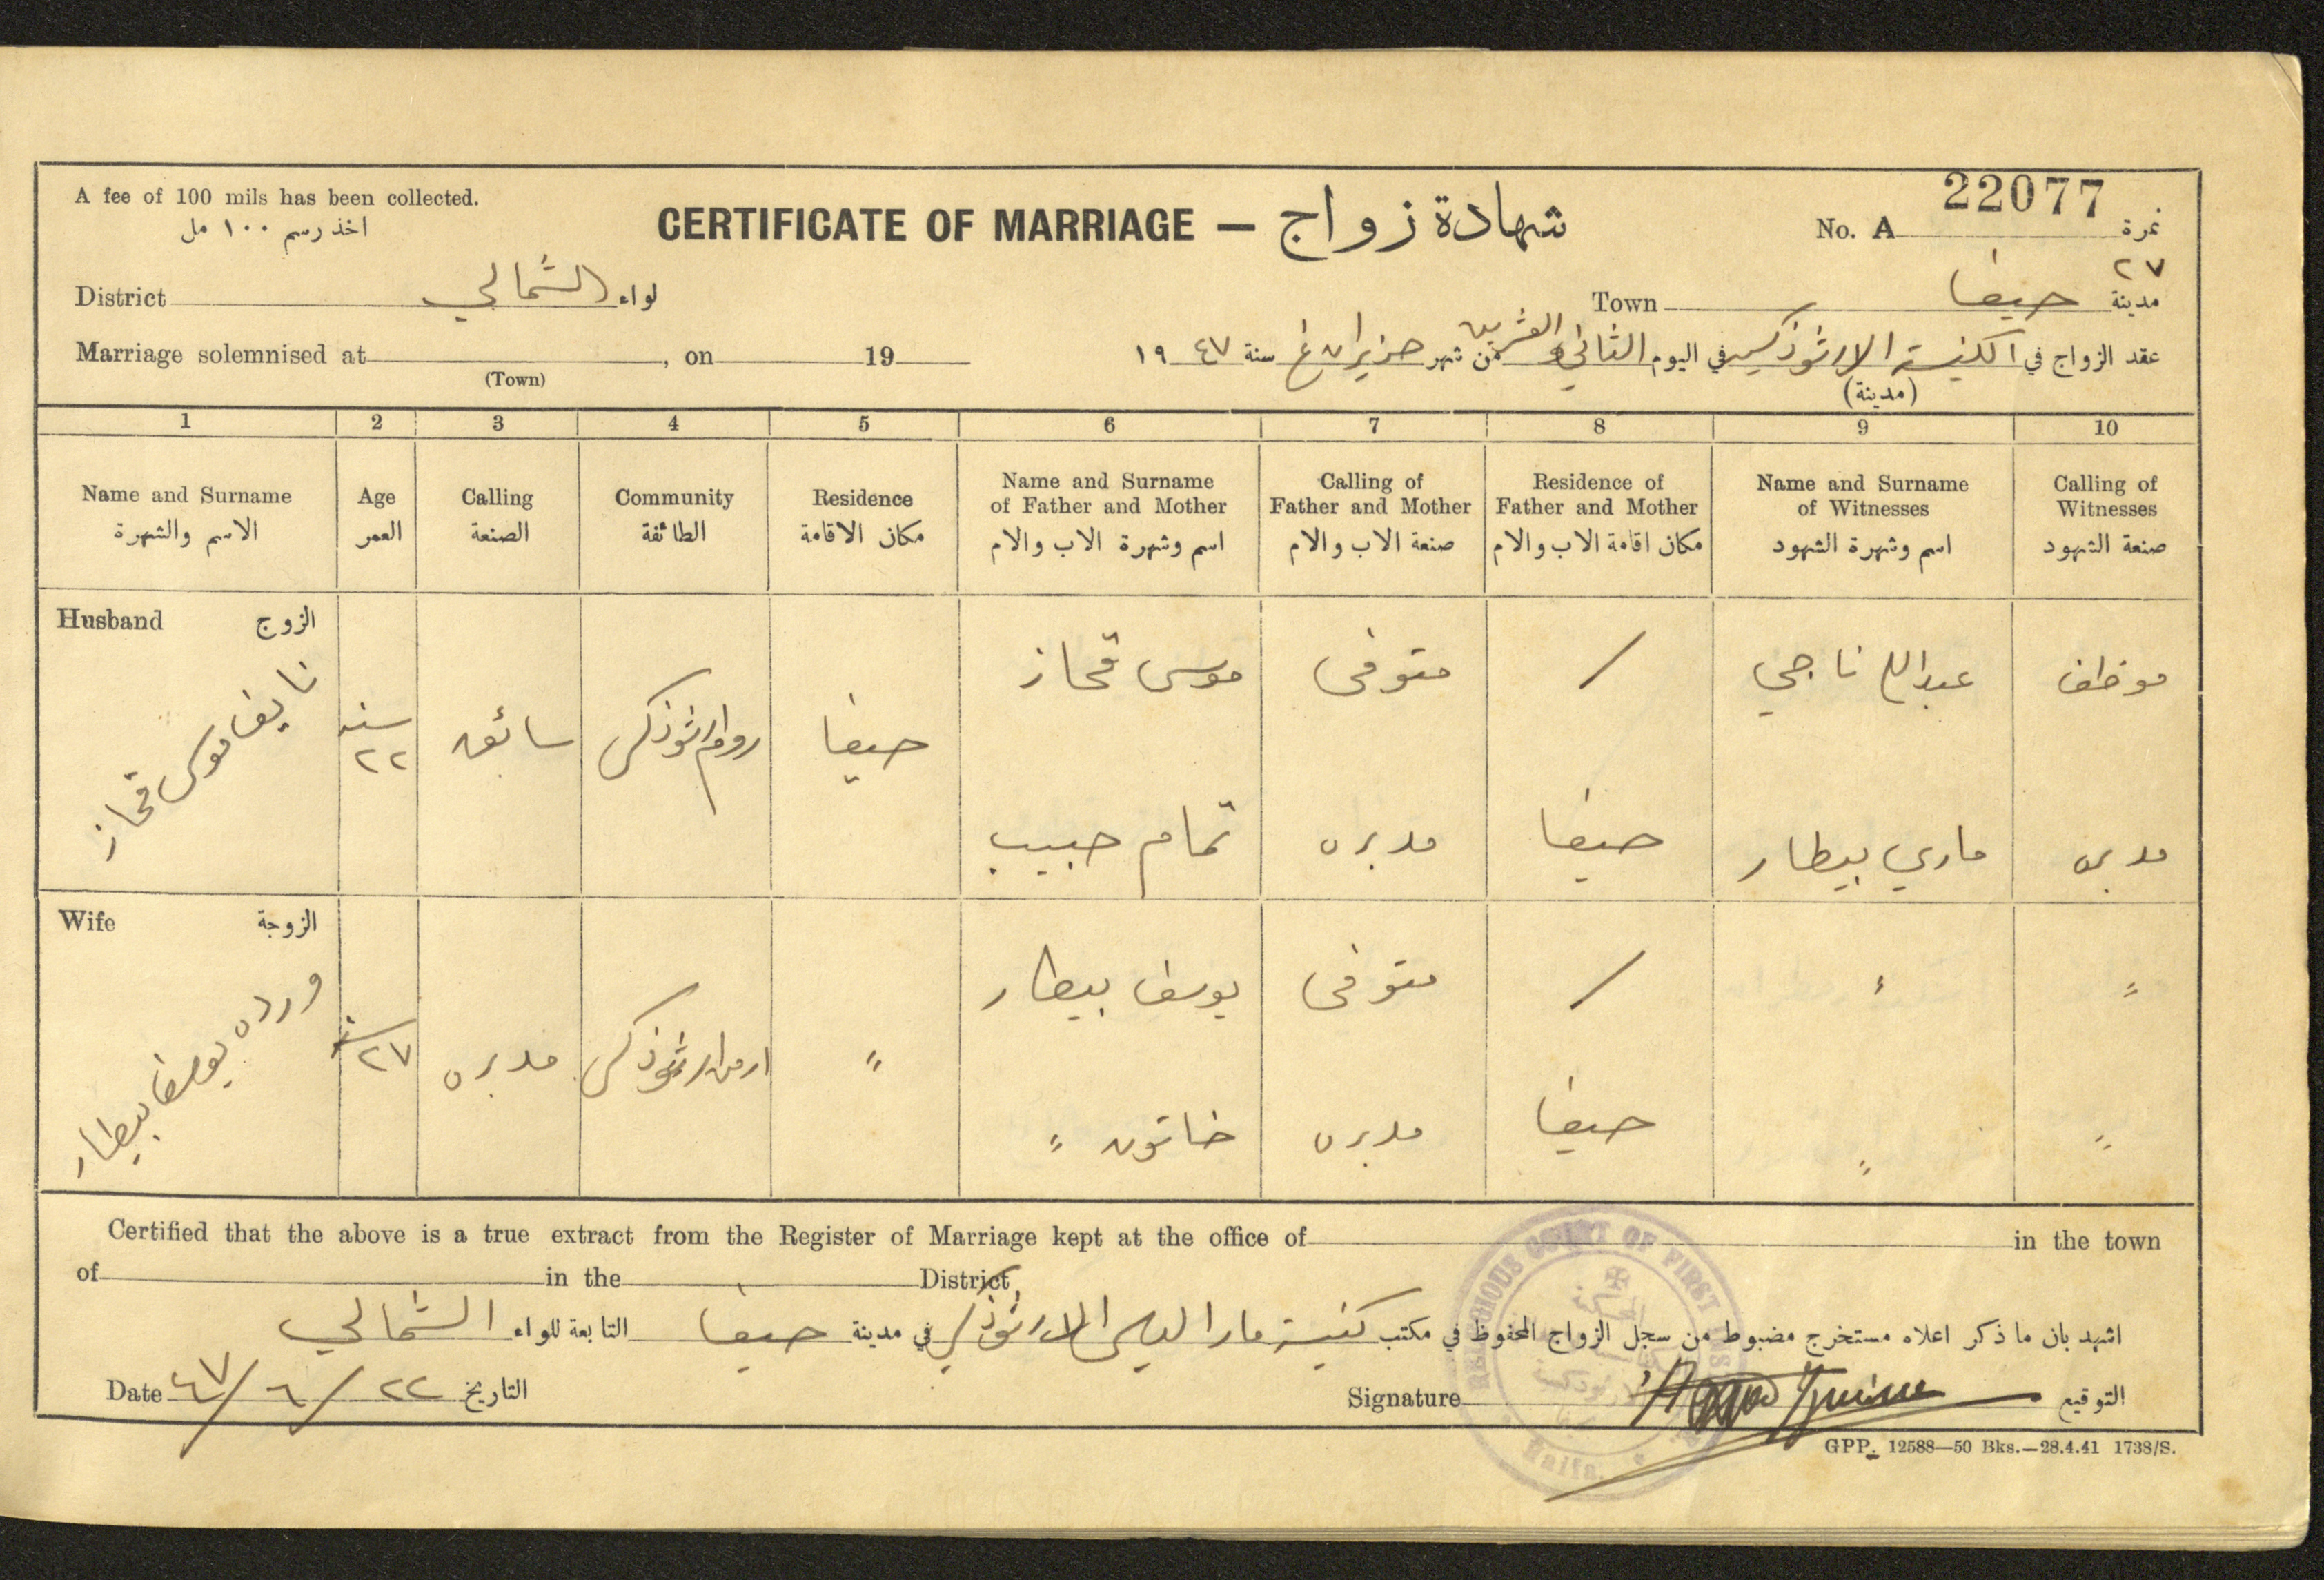 A fee of 100 mils has been collected.
اخذ رسم ١٠٠ مل
CERTIFICATE OF MARRIAGE — شهادة زواج
No. A 22077 نمرة
٢٧
District الشمالي لواء
Town حيفا مدينة
Marriage solemnised at , on 19
(Town)
عقد الزواج في الكنيسة الارثوذكسية في اليوم الثاني والعشرين من شهر حزيران غ سنة ١٩٤٧
(مدينة)
1 2 3 4 5 6 7 8 9 10
Name and Surname
الاسم والشهرة
Age
العمر
Calling
الصنعة
Community
الطائفة
Residence
مكان الاقامة
Name and Surname
of Father and Mother
اسم وشهرة الاب والام
Calling of
Father and Mother
صنعة الاب والام
Residence of
Father and Mother
مكان اقامة الاب والام
Name and Surname
of Witnesses
اسم وشهرة الشهود
Calling of
Witnesses
صنعة الشهود
Husband الزوج
نايف موسى قحاز
سنة
٢٢
سائق
روم ارثوذكس
حيفا
موسى قحاز
متوفى
/
عبدالله ناجي
موظف
تمام حبيب
مدبره
حيفا
ماري بيطار
مدبره
Wife الزوجة
ورده يوسف بيطار
سنة
٢٧
مدبره
ارمن ارثوذكس
"
يوسف بيطار
متوفى
/
"
"
خاتون "
مدبره
حيفا
"
"
Certified that the above is a true extract from the Register of Marriage kept at the office of in the town
of in the District
اشهد بان ما ذكر اعلاه مستخرج مضبوط من سجل الزواج المحفوظ في مكتب كنيسة مار الياس الارثوذكس في مدينة حيفا التابعة للواء الشمالي
Date ٤٧/٦/٢٢ التاريخ
Signature التوقيع
RELIGIOUS COURT OF FIRST
Haifa.
GPP. 12588—50 Bks.—28.4.41 1738/S.